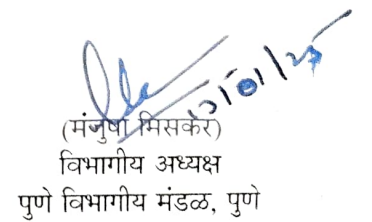 (मंजुषा मिसकर)
विभागीय अध्यक्ष
पुणे विभागीय मंडळ, पुणे